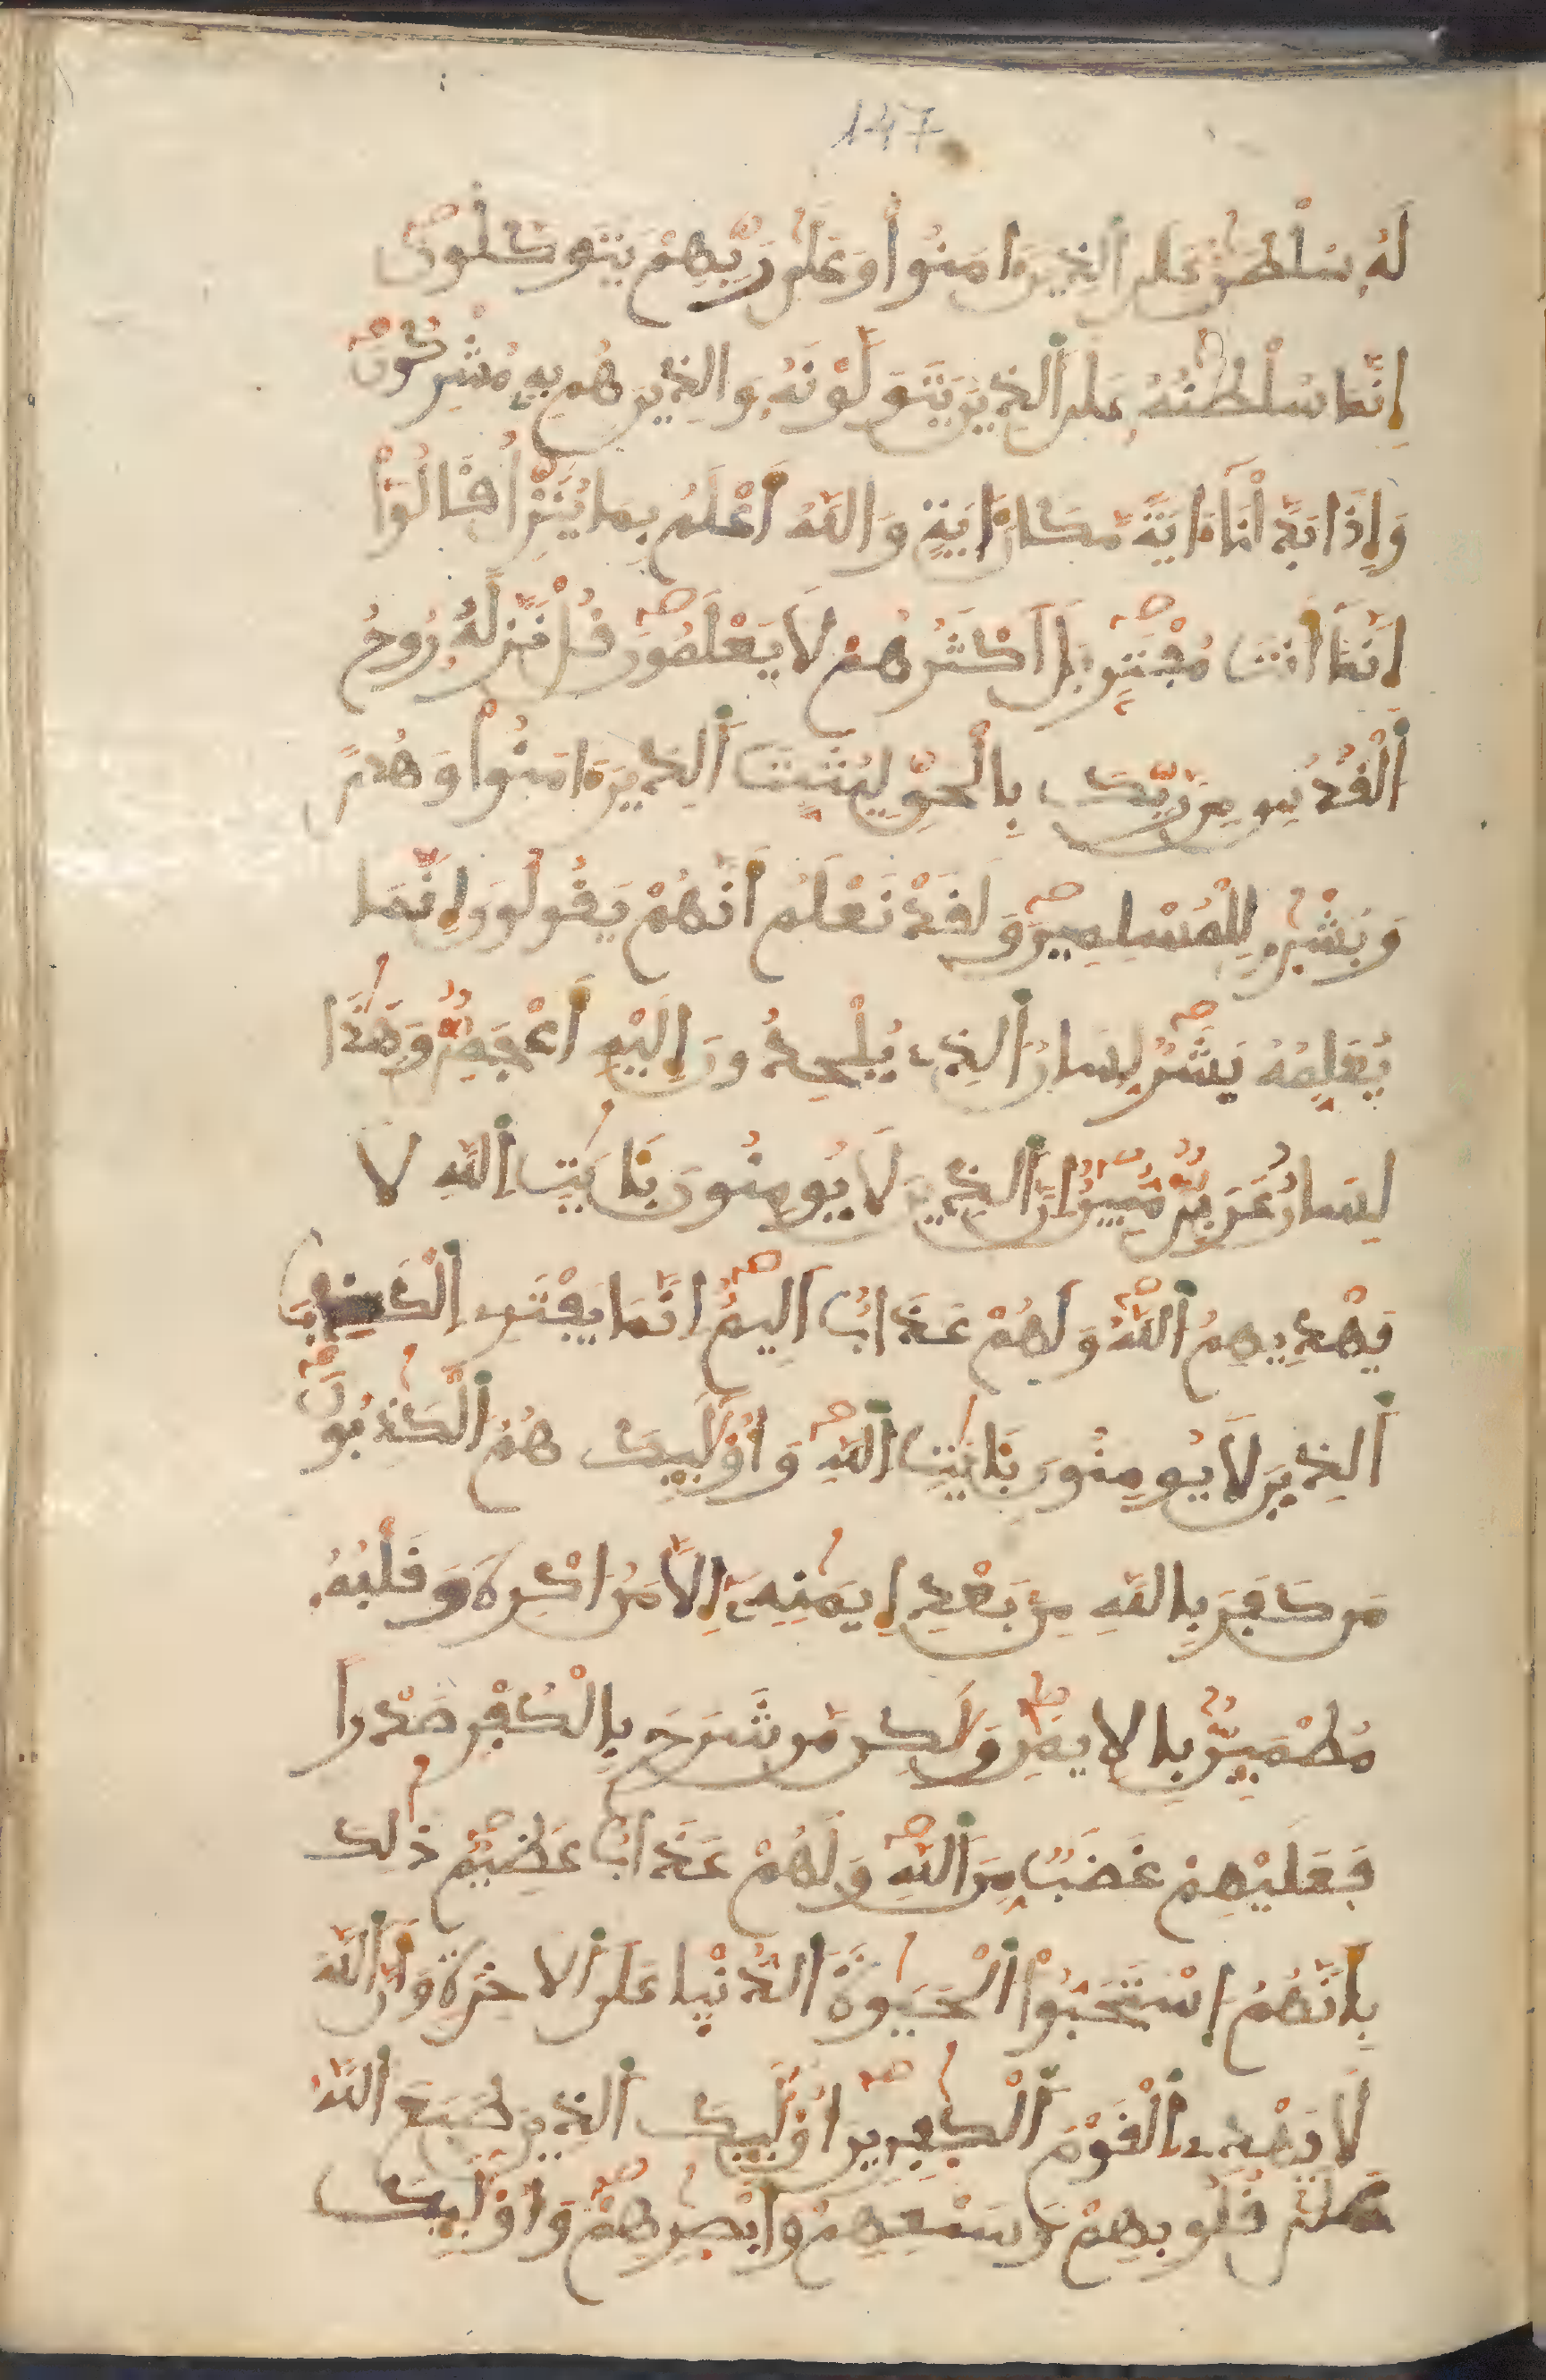 147
لَهُۥ سُلْطَٰنٌ عَلَى ٱلذِينَ ءَامَنُوا۟ وَعَلَىٰ رَبِّهِمْ يَتَوَكَّلُونَ
إِنَّمَا سُلْطَٰنُهُۥ عَلَى ٱلذِينَ يَتَوَلَّوْنَهُۥ وَالذِينَ هُم بِهِۦ مُشْرِكُونَ
وَإِذَا بَدَّلْنَا ءَايَةً مَّكَانَ ءَايَةٍ وَاللَّهُ أَعْلَمُ بِمَا يُنَزِّلُ قَالُوٓا۟
إِنَّمَا أَنتَ مُفْتَرٍۭ بَلَ اَكْثَرُهُمْ لَا يَعْلَمُونَ قُلْ نَزَّلَهُۥ رُوحُ
ٱلْقُدُسِ مِن رَّبِّكَ بِالْحَقِّ لِيُثَبِّتَ ٱلذِينَ ءَامَنُوا۟ وَهُدىً
وَبُشْرَىٰ لِلْمُسْلِمِينَ وَلَقَدْ نَعْلَمُ أَنَّهُمْ يَقُولُونَ إِنَّمَا
يُعَلِّمُهُۥ بَشَرٌ لِّسَانُ ٱلذِے يُلْحِدُونَ إِلَيْهِ أَعْجَمِىٌّ وَهَٰذَا
لِسَانٌ عَرَبِىٌّ مُّبِينٌ اِنَّ ٱلذِينَ لَا يُومِنُونَ بِـَٔايَٰتِ ٱللَّهِ لَا
يَهْدِيهِمُ ٱللَّهُ وَلَهُمْ عَذَابٌ اَلِيمٌ اِنَّمَا يَفْتَرِے ٱلْكَذِبَ
ٱلذِينَ لَا يُومِنُونَ بِـَٔايَٰتِ ٱللَّهِ وَأُوْلَٰٓئِكَ هُمُ ٱلْكَٰذِبُونَ
مَن كَفَرَ بِاللَّهِ مِنۢ بَعْدِ إِيمَٰنِهِۦٓ إِلَّا مَنُ ا۟كْرِهَ وَقَلْبُهُۥ
مُطْمَئِنٌّۢ بِالِايمَٰنِ وَلَٰكِن مَّن شَرَحَ بِالْكُفْرِ صَدْراً
فَعَلَيْهِمْ غَضَبٌ مِّنَ ٱللَّهِ وَلَهُمْ عَذَابٌ عَظِيمٌ ذَٰلِكَ
بِأَنَّهُمُ اسْتَحَبُّوا۟ ٱلْحَيَوٰةَ ٱلدُّنْيَا عَلَى ٱلَاخِرَةِ وَأَنَّ ٱللَّهَ
لَا يَهْدِے ٱلْقَوْمَ ٱلْكَٰفِرِينَ أُوْلَٰٓئِكَ ٱلذِينَ طَبَعَ ٱللَّهُ
عَلَىٰ قُلُوبِهِمْ وَسَمْعِهِمْ وَأَبْصَٰرِهِمْ وَأُوْلَٰٓئِكَ